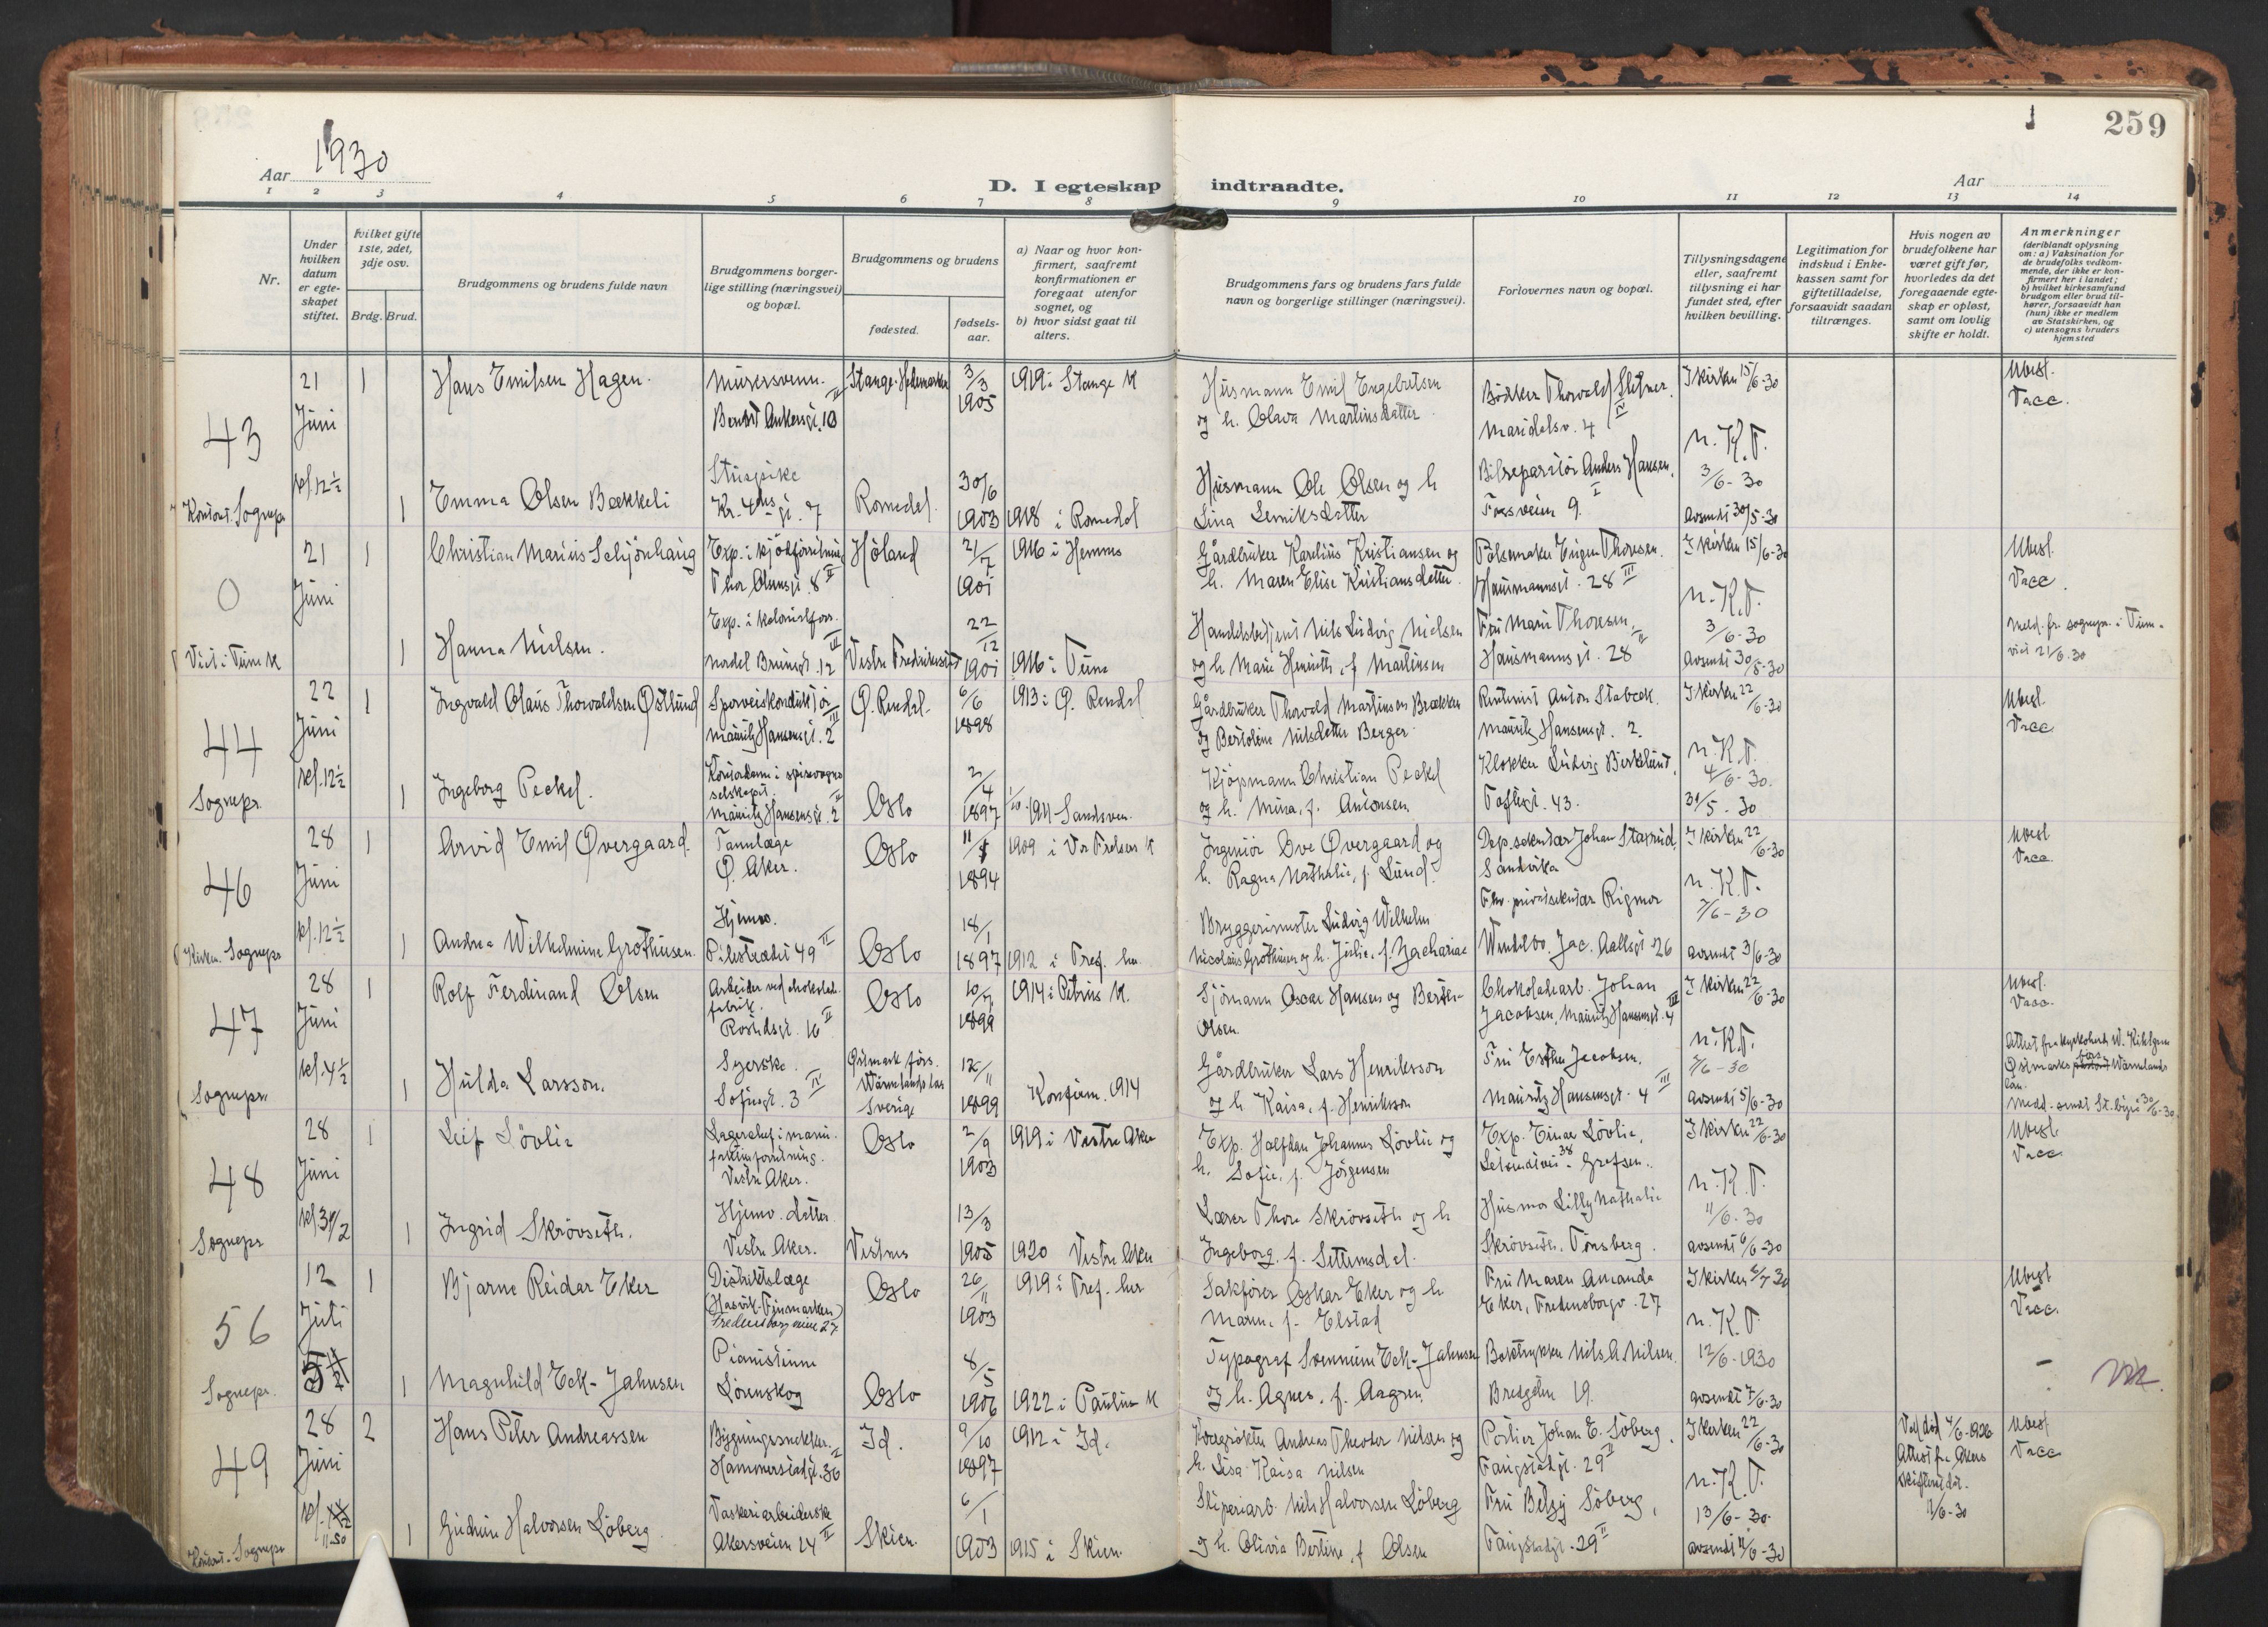 259
Aar 1930
D. I egteskap indtraadte.
Aar
1 2 3 4 5 6 7 8 9 10 11 12 13 14
Nr.
Under hvilken datum er egteskapet stiftet.
hvilket gifte 1ste, 2det, 3dje osv.
Brdg. Brud.
Brudgommens og brudens fulde navn
Brudgommens borgerlige stilling (næringsvei) og bopæl.
Brudgommens og brudens
fødested.
fødselsaar.
a) Naar og hvor konfirmert, saafremt konfirmationen er foregaat utenfor sognet, og
b) hvor sidst gaat til alters.
Brudgommens fars og brudens fars fulde navn og borgerlige stillinger (næringsvei).
Forlovernes navn og bopæl.
Tillysningsdagene eller, saafremt tillysning ei har fundet sted, efter hvilken bevilling.
Legitimation for indskud i Enkekassen samt for giftetilladelse, forsaavidt saadan tiltrænges.
Hvis nogen av brudefolkene har været gift før, hvorledes da det foregaaende egteskap er opløst, samt om lovlig skifte er holdt.
Anmerkninger
(deriblandt oplysning om: a) Vaksination for de brudefolks vedkommende, der ikke er konfirmert her i landet; b) hvilket kirkesamfund brudgom eller brud tilhører, forsaavidt han (hun) ikke er medlem av Statskirken, og c) utensogns bruders hjemsted
43 21 Juni kl. 12½ 1 Hans Emilsen Hagen. Murersvenn. Stange Hedemarken 3/3 1905 1919 i Stange K
Husmann Emil Engebretsen og h. Olava Martinsdatter Bödker Thorvald Sletner, Maridalsv. 4 IV I kirken 15/6-30 Ubesl. Vacc.
Sognepr. 1 Emma Olsen Bækkeli Stuepike Kr. 4des gt. 7 Romedal. 30/6 1903 1918 i Romedal
Husmann Ole Olsen og h Bilreparatör Anders Hansen, Fossveien 9. I n. K. T. 3/6-30 avsendt 30/5-30
0 21 Juni 1 Christian Marius Schjönhaug Thor Olsensgt. 8 II Höland 21/7 1901 1916 i Hemnes
Gårdbruker Karelius Kristiansen og h. Maren Elise Kristiansdatter. Pölsemaker Eugen Thoresen. Hausmannsgt. 28 III I kirken 15/6-30 Ubesl. Vacc.
1 Hanna Nielsen. Nordal Brunsgt. 12 III Vestre Fredrikstad 22/12 1901
Handelsbetjent Nils Ludvig Nielsen og h. Marie Henriette, f. Martinsen Fru Marie Thoresen, Hausmannsgt. 28 n. K. T. 3/6-30 avsendt 30/5-30
44 22 Juni kl. 12½ 1 Ingvald Olaus Thorvaldsen Østlund Sporveiskonduktör Mauritz Hansensgt. 2 III Ø. Rendal. 6/6 1898 1913 i Ø. Rendal
Gårdbruker Thorvald Martinsen Brækken og Bertoline Nilsdatter Berger. Rentenist Anton Stabæk. Mauritz Hansensgt. 2. I kirken 22/6-30 Ubesl. Vacc.
Sognepr. 1 Ingeborg Peckel. Mauritz Hansensgt. 2 Oslo 2/4 1897
Kjöpmann Christian Peckel og h. Mina, f. Antonsen Klokker Ludvig Berklund, Toftesgt. 43. n. K. T. 4/6-30. 31/5-30
46 28 Juni kl. 12½ 1 Arvid Emil Øvergaard. Tannlæge Ø. Aker. Oslo 1894 1909 i Vor Frelsers K
Ingeniör Ove Øvergaard og h. Ragna Nathalie, f. Lund. Johan Stasrud, Sandvika I kirken 22/6-30 Ubesl Vacc.
Kirken. Sognepr 1 Andrea Wilhelmine Grothusen. Hjemv. Pilestrædet 49 II Oslo 18/1 1897 1912 i Tref. her.
Bryggerimester Ludvig Wilhelm Nicolaus Grothusen og h. Julie, f. Zachariae Rigmor Wendelbo, Jac. Aallsgt 26 n. K. T. 7/6-30 avsendt 3/6-30
47 28 Juni kl. 4½ 1 Rolf Ferdinand Olsen Arbeider ved chokoladefabrik. 16 II Oslo 1899 1914 i Petrus K.
Sjömann Oscar Hansen og Berthe Olsen. Chokoladearb. Johan Jacobsen, Mauritz Hansensgt. 4 III I kirken 22/6-30 Ubesl. Vacc.
Sognepr. 1 Hulda Larsson. Syerske. Sofiesgt. 3 IV Östmark förs. Värmlands län Sverige 12/11 1899 Konfirm. 1914
Gårdbruker Lars Henriksson og h. Kaisa, f. Henriksson Fru Esther Jacobsen. Mauritz Hansensgt. 4 III n. K. T. 7/6-30 avsendt 5/6-30
48 28 Juni kl 3½ 1 Leif Lövlie Lagerchef i manufakturforretning. Vestre Aker. Oslo 2/9 1903 1919 i Vestre Aker
Exp. Halfdan Johannes Lövlie og h. Sofie, f. Jörgensen Exp. Einar Lövlie, 38 Grefsen. I kirken 22/6-30 Ubesl. Vacc.
Sognepr 1 Ingrid Skrövseth. Hjemv. datter Vestre Aker. Vestnes 13/3 1905 1920 Vestre Aker
Lærer Thore Skrövseth og h Ingeborg, f. Settemsdal. Husmor Lilly Nathalie Skrövseth, Tönsberg. n. K. T. 11/6-30 avsendt 6/6-30
56 12 Juli 1 Bjarne Reidar Eker Distriktslæge (Hasvik-Finmarken) Fredensborgveien 27 Oslo 26/11 1903 1919 i Tref. her
Sakförer Oskar Eker og h Maren, f. Elstad Fru Maren Amanda Eker, Fredensborgv. 27 I kirken Ubesl. Vacc.
Sognepr. 1 Magnhild Eck-Jahnsen Pianistinne Lørenskog Oslo 8/5 1906 1922 i Paulus K
Typograf Svennum Eck-Jahnsen og h. Agnes, f. Aagren Boktrykker Nils A. Nilsen. Bredgaten 19. n. K. T. 12/6-1930 avsendt 7/6-30
49 28 Juni 11-50 2 Hans Peter Andreassen Bygningssnekker. Hammerstadgt. 36 Id. 9/10 1897 1912 i Id.
Andreas Theodor Nilsen og h. Lisa Kaisa Nilsen Portier Johan E. Söberg. Vangstadgt. 29 II I kirken 22/6-30 Attest fra Akers skifterett Ubesl Vacc
Kontoret. Sognepr 1 Gudrun Halvorsen Löberg. Vaskeriarbeiderske Akersveien 24 II Skien. 6/1 1903 1915 i Skien.
Sliperiarb. Nils Halvorsen Löberg og h. Olivia Bertine, f Olsen Fru Betzy Söberg, n. K. T. 13/6-30. avsendt 11/6-30